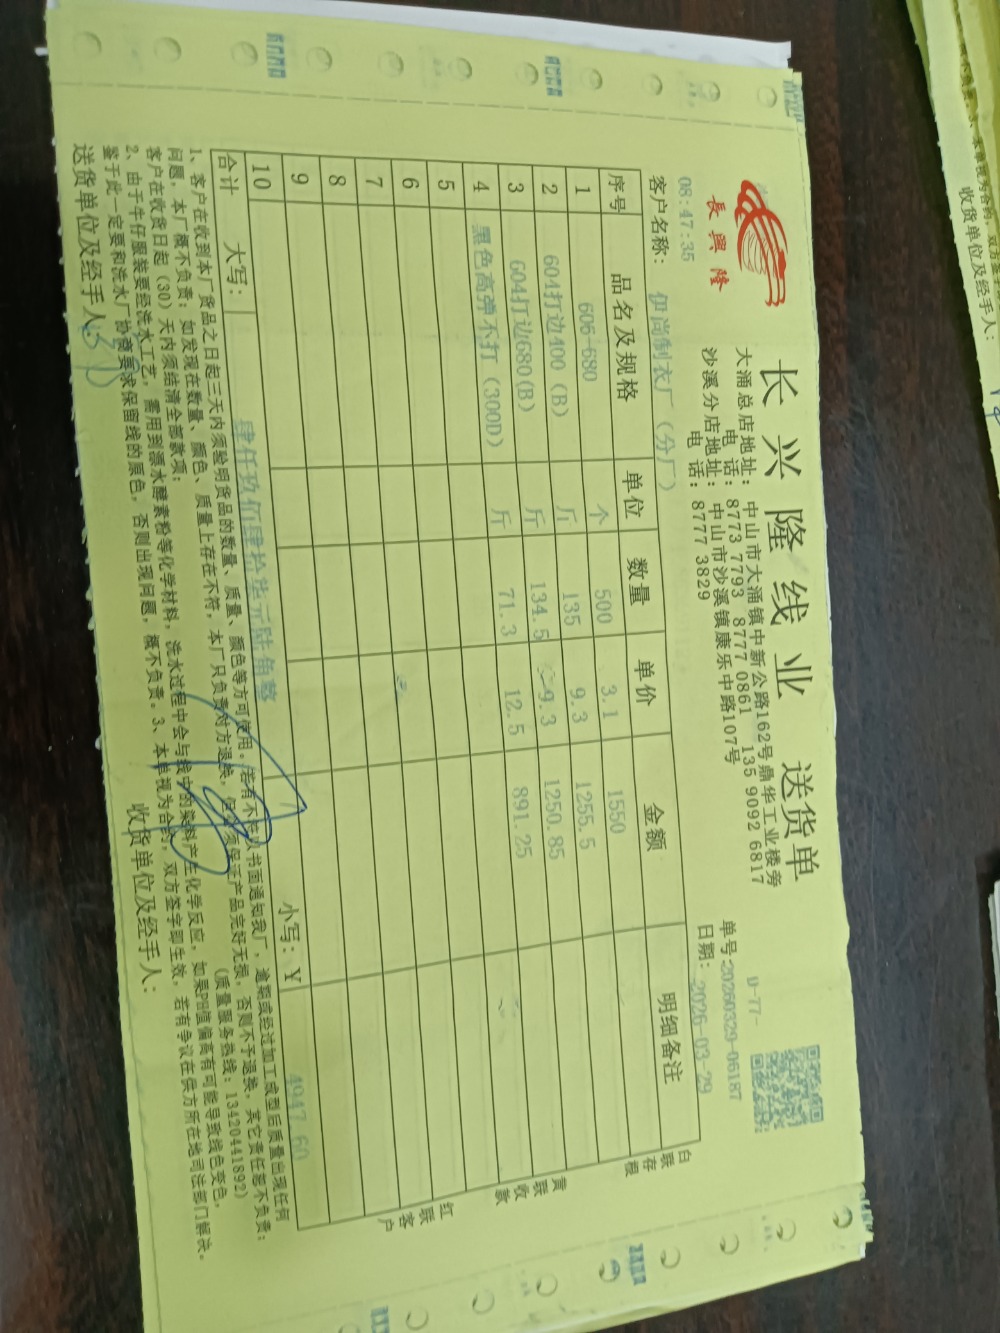 長興隆
长兴隆线业 送货单
大涌总店地址：中山市大涌镇中新公路162号鼎华工业楼旁
电话：8773 7793 8777 0861 135 9092 6817
沙溪分店地址：中山市沙溪镇康乐中路107号
电话：8777 3829
D-77-
单号:20260329-06187
日期：2026-03-29
08:47:35
客户名称：伊尚制衣厂（分厂）
序号 品名及规格 单位 数量 单价 金额 明细备注
1 606-680 个 500 3.1 1550
2 604打边400（B） 斤 135 9.3 1255.5
3 604打边680(B) 斤 134.5 9.3 1250.85
4 黑色高弹不打（300D） 斤 71.3 12.5 891.25
5
6
7
8
9
10
合计 大写：肆仟玖佰肆拾柒元陆角整 小写：Y 4947.60
白联存根
黄联收款
红联客户
1、客户在收到本厂货品之日起三天内须验明货品的数量、质量、颜色等方可使用。若有不符以书面通知我厂，逾期或经过加工成型后质量出现任何
问题，本厂概不负责；如发现在数量、颜色、质量上存在不符，本厂只负责对方退换，但必须保证产品完好无损，否则不予退换，其它责任恕不负责；
客户在收货日起（30）天内须结清全部款项； （质量服务热线：13420441892）
2、由于牛仔服装要经洗水工艺，需用到漂水酵素粉等化学材料，洗水过程中会与线中的染料产生化学反应，如果PH值偏高有可能导致线色变色，
鉴于此一定要和洗水厂协商要求保留线的原色，否则出现问题，概不负责。3、本单视为合约，双方签字即生效，若有争议在供方所在地司法部门解决。
送货单位及经手人：
收货单位及经手人：
收货单位及经手人：